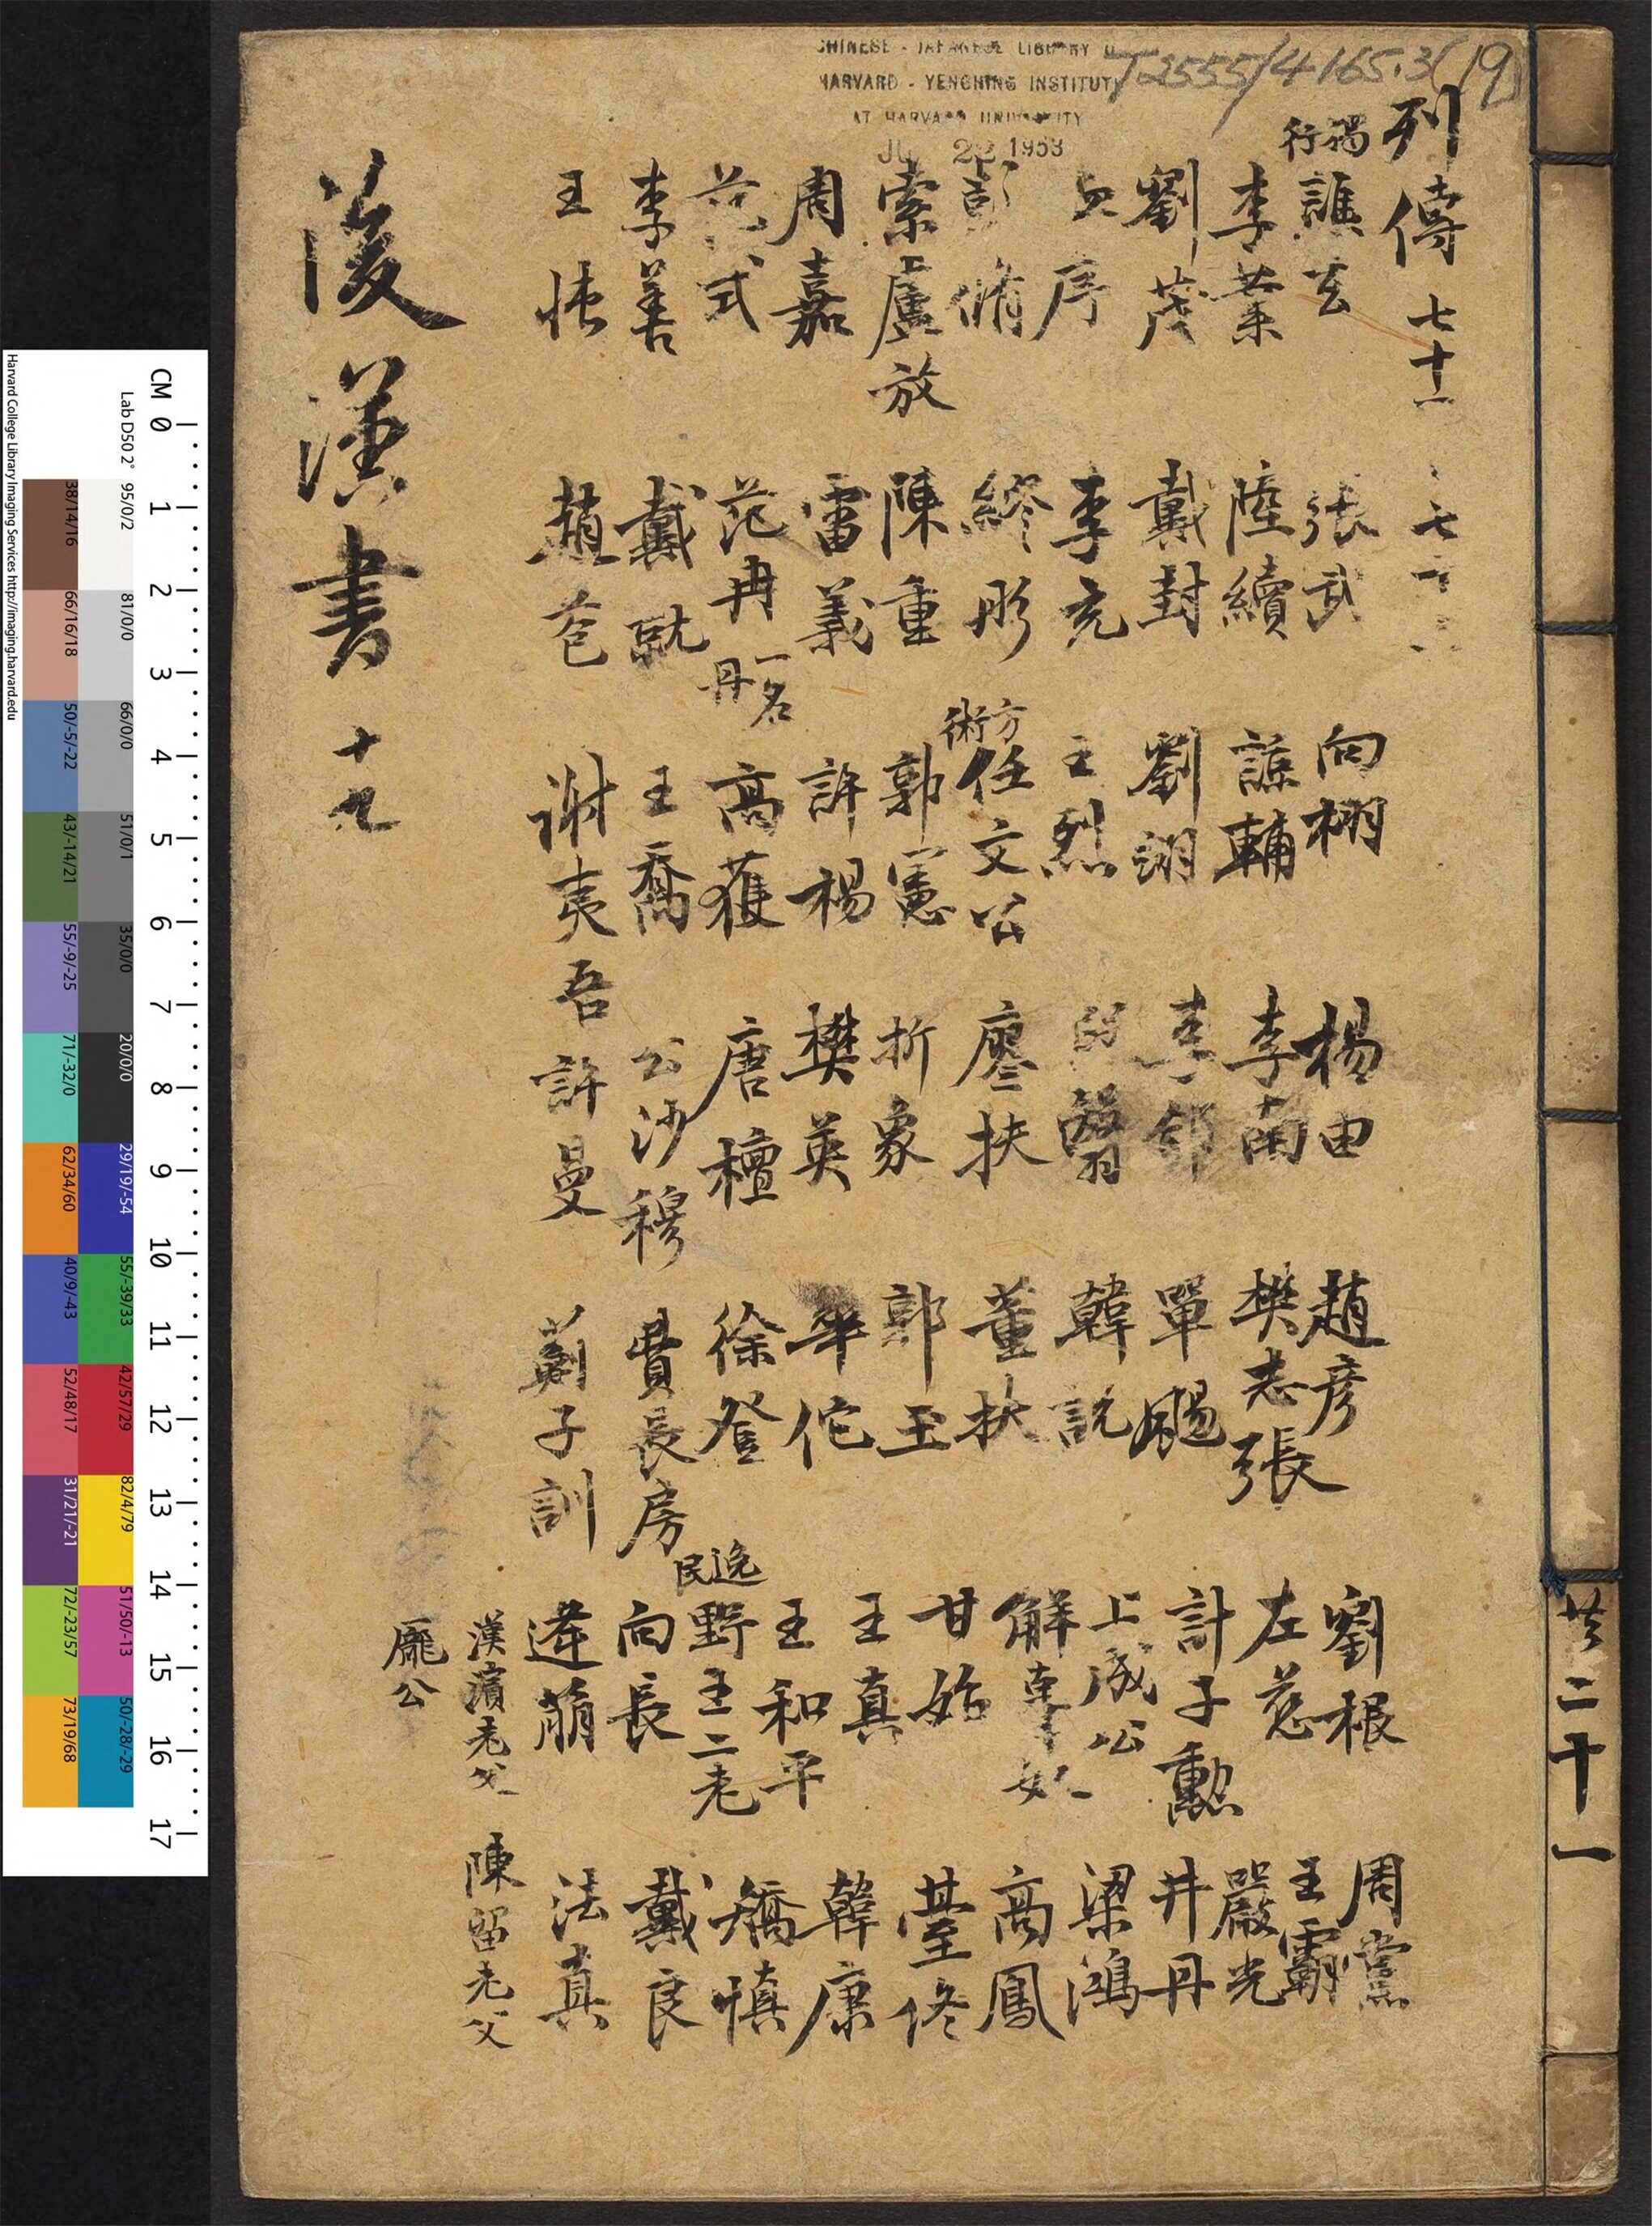 CHINESE - JAPANESE LIBRARY
HARVARD - YENCHING INSTITUTE
AT HARVARD UNIVERSITY
22 1953
T2555/4165.3(19)
列傳 七十一
獨行
譙玄
李業
劉茂
序
彭脩
索盧放
周嘉
范式
李善
王忳
張武
陸續
戴封
李充
繆肜
陳重
雷義
范冉 一名丹
戴就
趙苞
向栩
諒輔
劉翊
王烈
方術
任文公
郭憲
許楊
高獲
王喬
謝夷吾
楊由
李南
李郃
段翳
廖扶
折象
樊英
唐檀
公沙穆
許曼
趙彥
樊志張
單颺
韓說
董扶
郭玉
華佗
徐登
費長房
薊子訓
劉根
左慈
計子勳
上成公
解辜奴
甘始
王真
王和平
逸民
野王二老
向長
逢萌
周黨
王霸
嚴光
井丹
梁鴻
高鳳
臺佟
韓康
矯慎
戴良
法真
漢濱老父
陳留老父
龐公
後漢書 十九
共二十一
CM 0 1 2 3 4 5 6 7 8 9 10 11 12 13 14 15 16 17
Lab D50 2° 95/0/2 81/0/0 66/0/0 51/0/1 35/0/0 20/0/0 29/19/-54 55/-39/33 42/57/29 82/4/79 51/50/-13 50/-28/-29
38/14/16 66/16/18 50/-5/-22 43/-14/21 55/-9/-25 71/-32/0 62/34/60 40/9/-43 52/48/17 31/21/-21 72/-23/57 73/19/68
Harvard College Library Imaging Services http://imaging.harvard.edu